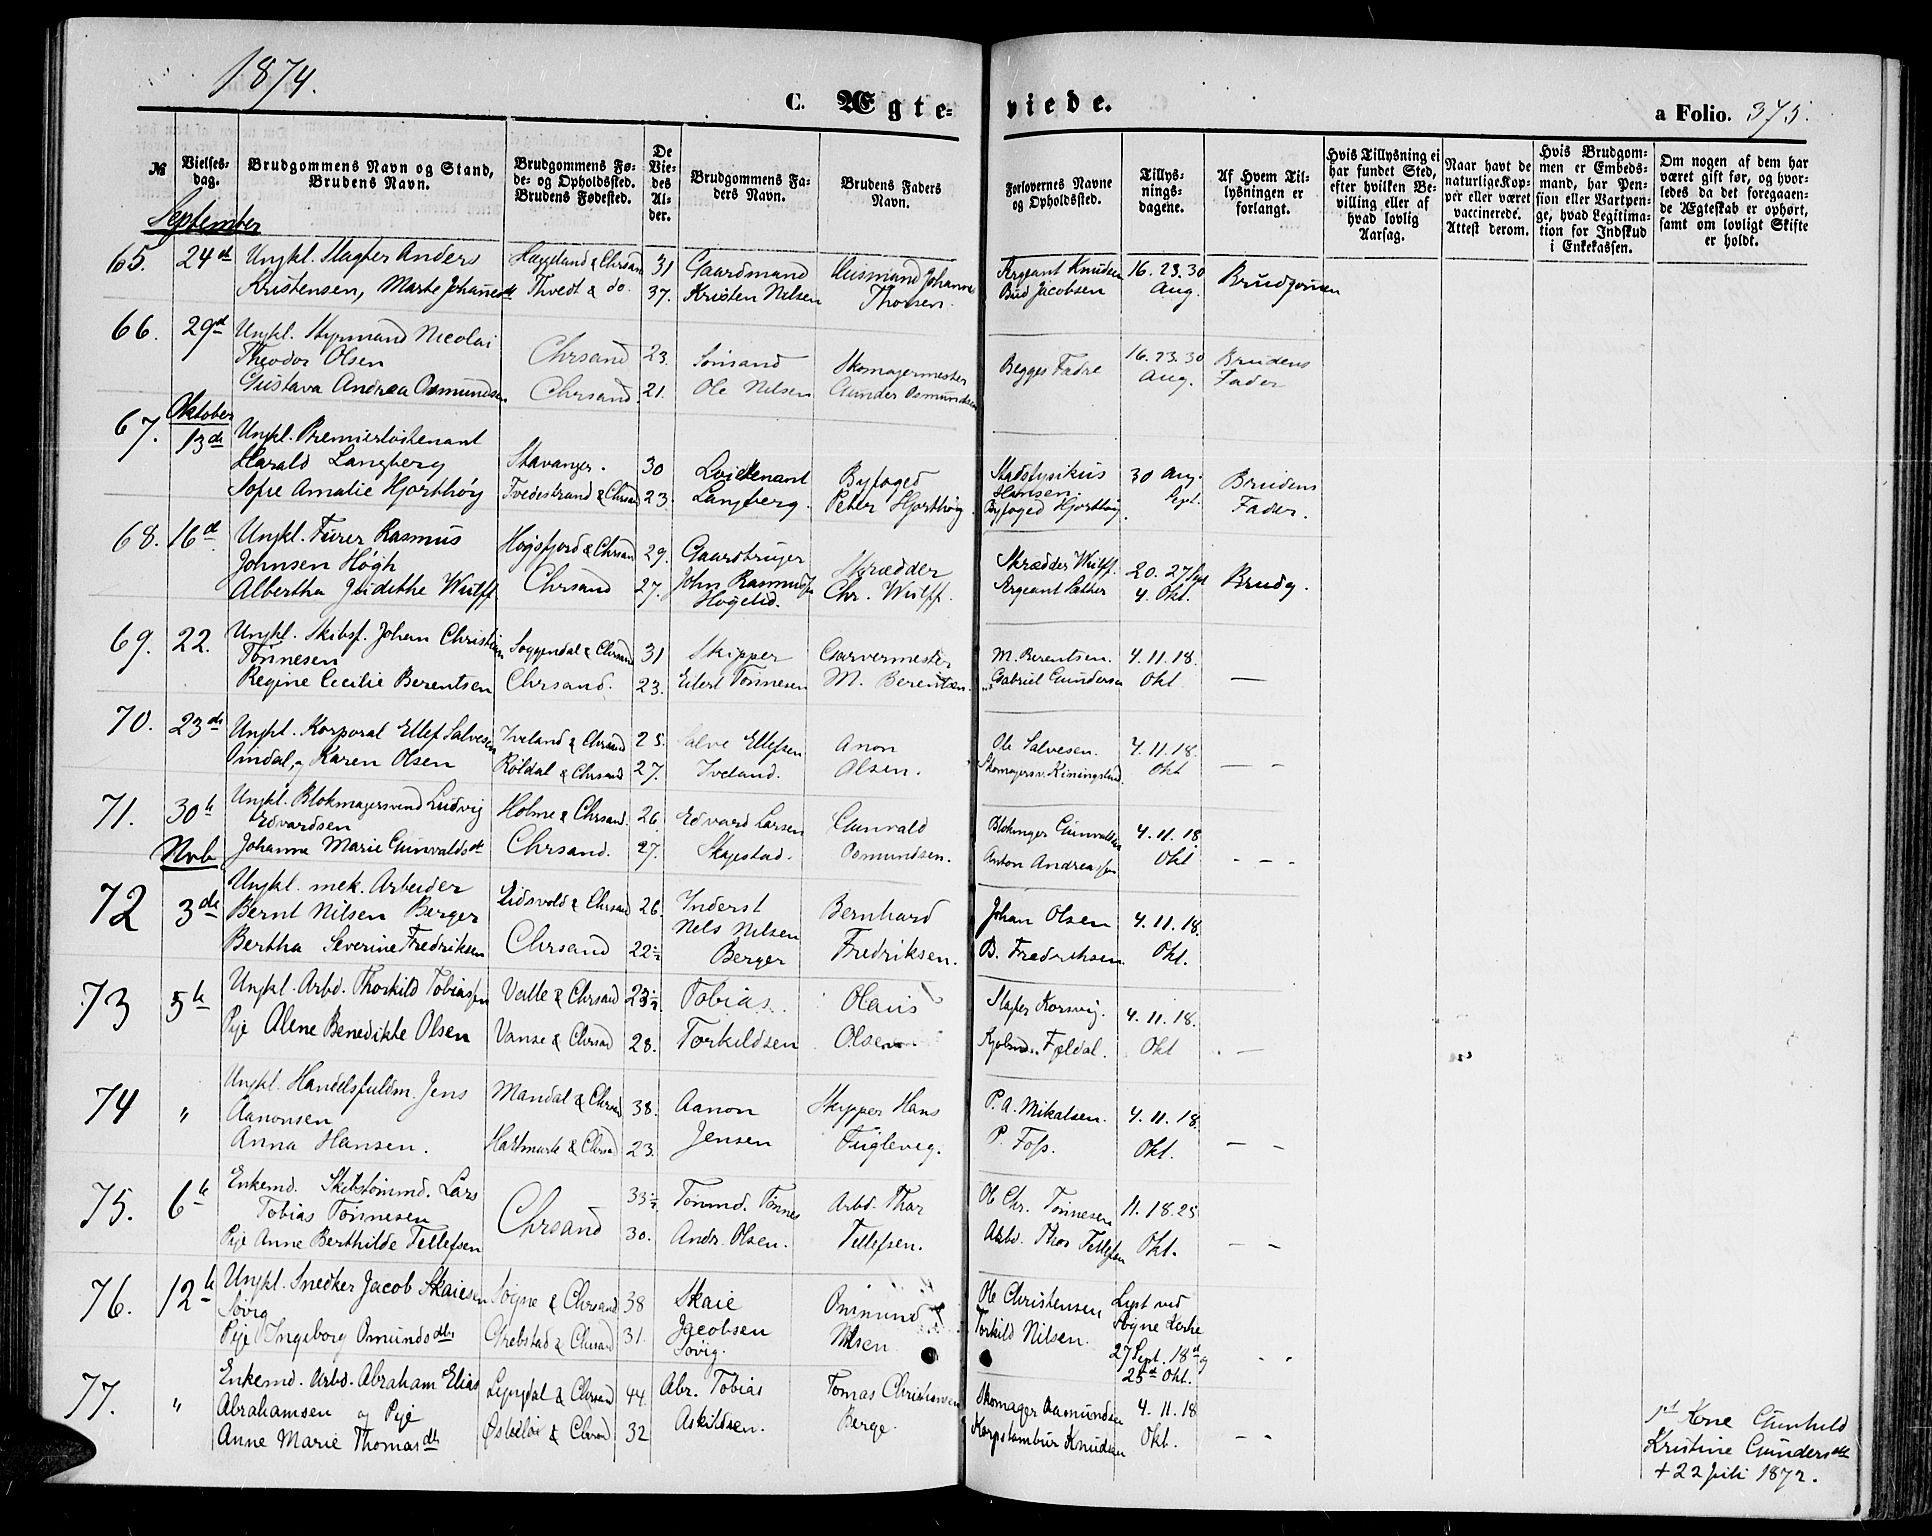 1874.
C. Ægteviede.
a Folio. 375.
№
Vielsesdag.
Brudgommens Navn og Stand, Brudens Navn.
Brudgommens Føde- og Opholdssted. Brudens Fødested.
De Viedes Alder.
Brudgommens Faders Navn.
Brudens Faders Navn.
Forlovernes Navne og Opholdssted.
Tillysningsdagene.
Af Hvem Tillysningen er forlangt.
Hvis Tillysning ei har fundet Sted, efter hvilken Bevilling eller af hvad lovlig Aarsag.
Naar havt de naturlige Kopper eller været vaccinerede. Attest derom.
Hvis Brudgommen er Embedsmand, har Pension eller Vartpenge, hvad Legitimation for Indskud i Enkekassen.
Om nogen af dem har været gift før, og hvorledes da det foregaaende Ægteskab er ophørt, samt om lovligt Skifte er holdt.
September
65. 24de Ungkl. Slagter Anders Hægeland & Chrsand 31 Gaardmand Huusmand Johannes Sergeant Knudsen 16. 23. 30 Brudgommen
Kristensen, Marte Johannesdt Thvedt & do. 37. Kristen Nilsen Thorsen. Bud Jacobsen Aug.
66. 29de Ungkl. Styrmand Nicolai
Theodor Olsen Chrsand 23. Sømand Skomagermester Begges Fædre 16. 23. 30 Brudens
Gustava Andrea Osmundsen Chrsand. 21. Ole Nilsen Gunder Osmundsen Aug. Fader
Oktober
67. 13de Ungkl. Premierløitenant
Harald Langberg Stavanger. 30 Løitenant Byfoged Stadsfysikus 30 Aug. Brudens
Sofie Amalie Hjorthøy Tvedestrand & Chrsand 23. Langberg. Peter Hjorthøy. Hansen. Byfoged Hjorthøy. Sept. Fader.
68. 16de. Ungkl. Furer Rasmus Høgsfjord & Chrsand 29. Gaardbruger
Johnsen Høgh Skrædder Skrædder Wulff. 20. 27 Sept Brudg.
Albertha Judithe Wulff Chrsand 27. John Rasmussen Høgelid. Chr. Wulff. Sergeant Sather 4. Okt.
69. 22. Ungkl. Skibsf. Johan Christian
Tønnesen Soggendal & Chrsand 31 Skipper Garvermester M. Berentsen. 4. 11. 18.
Regine Cecilie Berentsen Chrsand. 23. Eilert Tønnesen M. Berentsen. Gabriel Gundersen Okt. —
70. 23de Ungkl. Korporal Ellef Salvesen Iveland & Chrsand 25. Salve Ellefsen Anon Ole Salvesen. 4. 11. 18.
Omdal, og Karen Olsen Røldal & Chrsand 27. Iveland. Olsen. Skomagersv. Kiningsland Okt — —
71. 30te Ungkl. Blokmagersvend Ludvig Holme & Chrsand. 26. Edvard Larsen Gunvald Blokmager Gunvaldsen 4. 11. 18.
Edvardsen
Johanne Marie Gunvaldsdt Chrsand. 27. Skagestad. Osmundsen. Anton Andreassen Okt — — —
Nvb
72 3de Ungkl. mek. Arbeider
Bernt Nilsen Berger Eidsvold & Chrsand 26. Inderst Nels Nilsen Bernhard Johan Olsen 4. 11. 18.
Bertha Severine Fredriksen Chrsand 22½ Berger Fredriksen. B. Fredriksen. Okt.
73 5te Ungkl. Arbd. Thorkild Tobiassen Valle & Chrsand 23½ Tobias. Olaus Slagter Korsvig. 4. 11. 18.
Pige Alene Benedikte Olsen Vanse & Chrsand 28. Torkildsen Olsen Fjeldal. Okt . —
74 " Ungkl. Handelsfuldm. Jens Mandal & Chrsand 38. Aanon Skipper Hans P. A. Mikalsen. 4. 11. 18.
Aanonsen
Anna Hansen. Hartmark & Chrsand 23. Jensen Fuglevig. P. Foss. Okt. — —
75. 6te Enkemd. Skibstømmd. Lars 33½ Tømmd. Tønnes Arbd. Thor Ole Chr. Tønnesen 11. 18. 25
Tobias Tønnesen Chrsand
Pige Anne Berthilde Tellefsen 30. Andr. Olsen. Tellefsen. Arbd. Thor Tellefsen Okt. — —
76. 12te Ungkl. Snedker Jacob Skaiesen Søgne & Chrsand 38 Skaie Osmund Ole Christensen Lyst ved
Søvig Søgne Kirke
Pige Ingeborg Osmundsdtr Grebstad & Chrsand 31. Jacobsen Søvig. Nilsen Torkild Nilsen. 27 Sept. 18de og 25de Okt.
77. " Enkemd. Arbd. Abraham Elias Lyngdal & Chrsand 44. Abr. Tobias Tomas Christiansen Skomager Aamundsen 4. 11. 18
Abrahamsen og Pige
Anne Marie Thomasdtr Østeløi & Chrsand 32 Askildsen. Berge. Korpstambur Knudsen Okt. — —
1st Kone Gunhild
Kristine Gundersdt
† 22 Juli 1872.